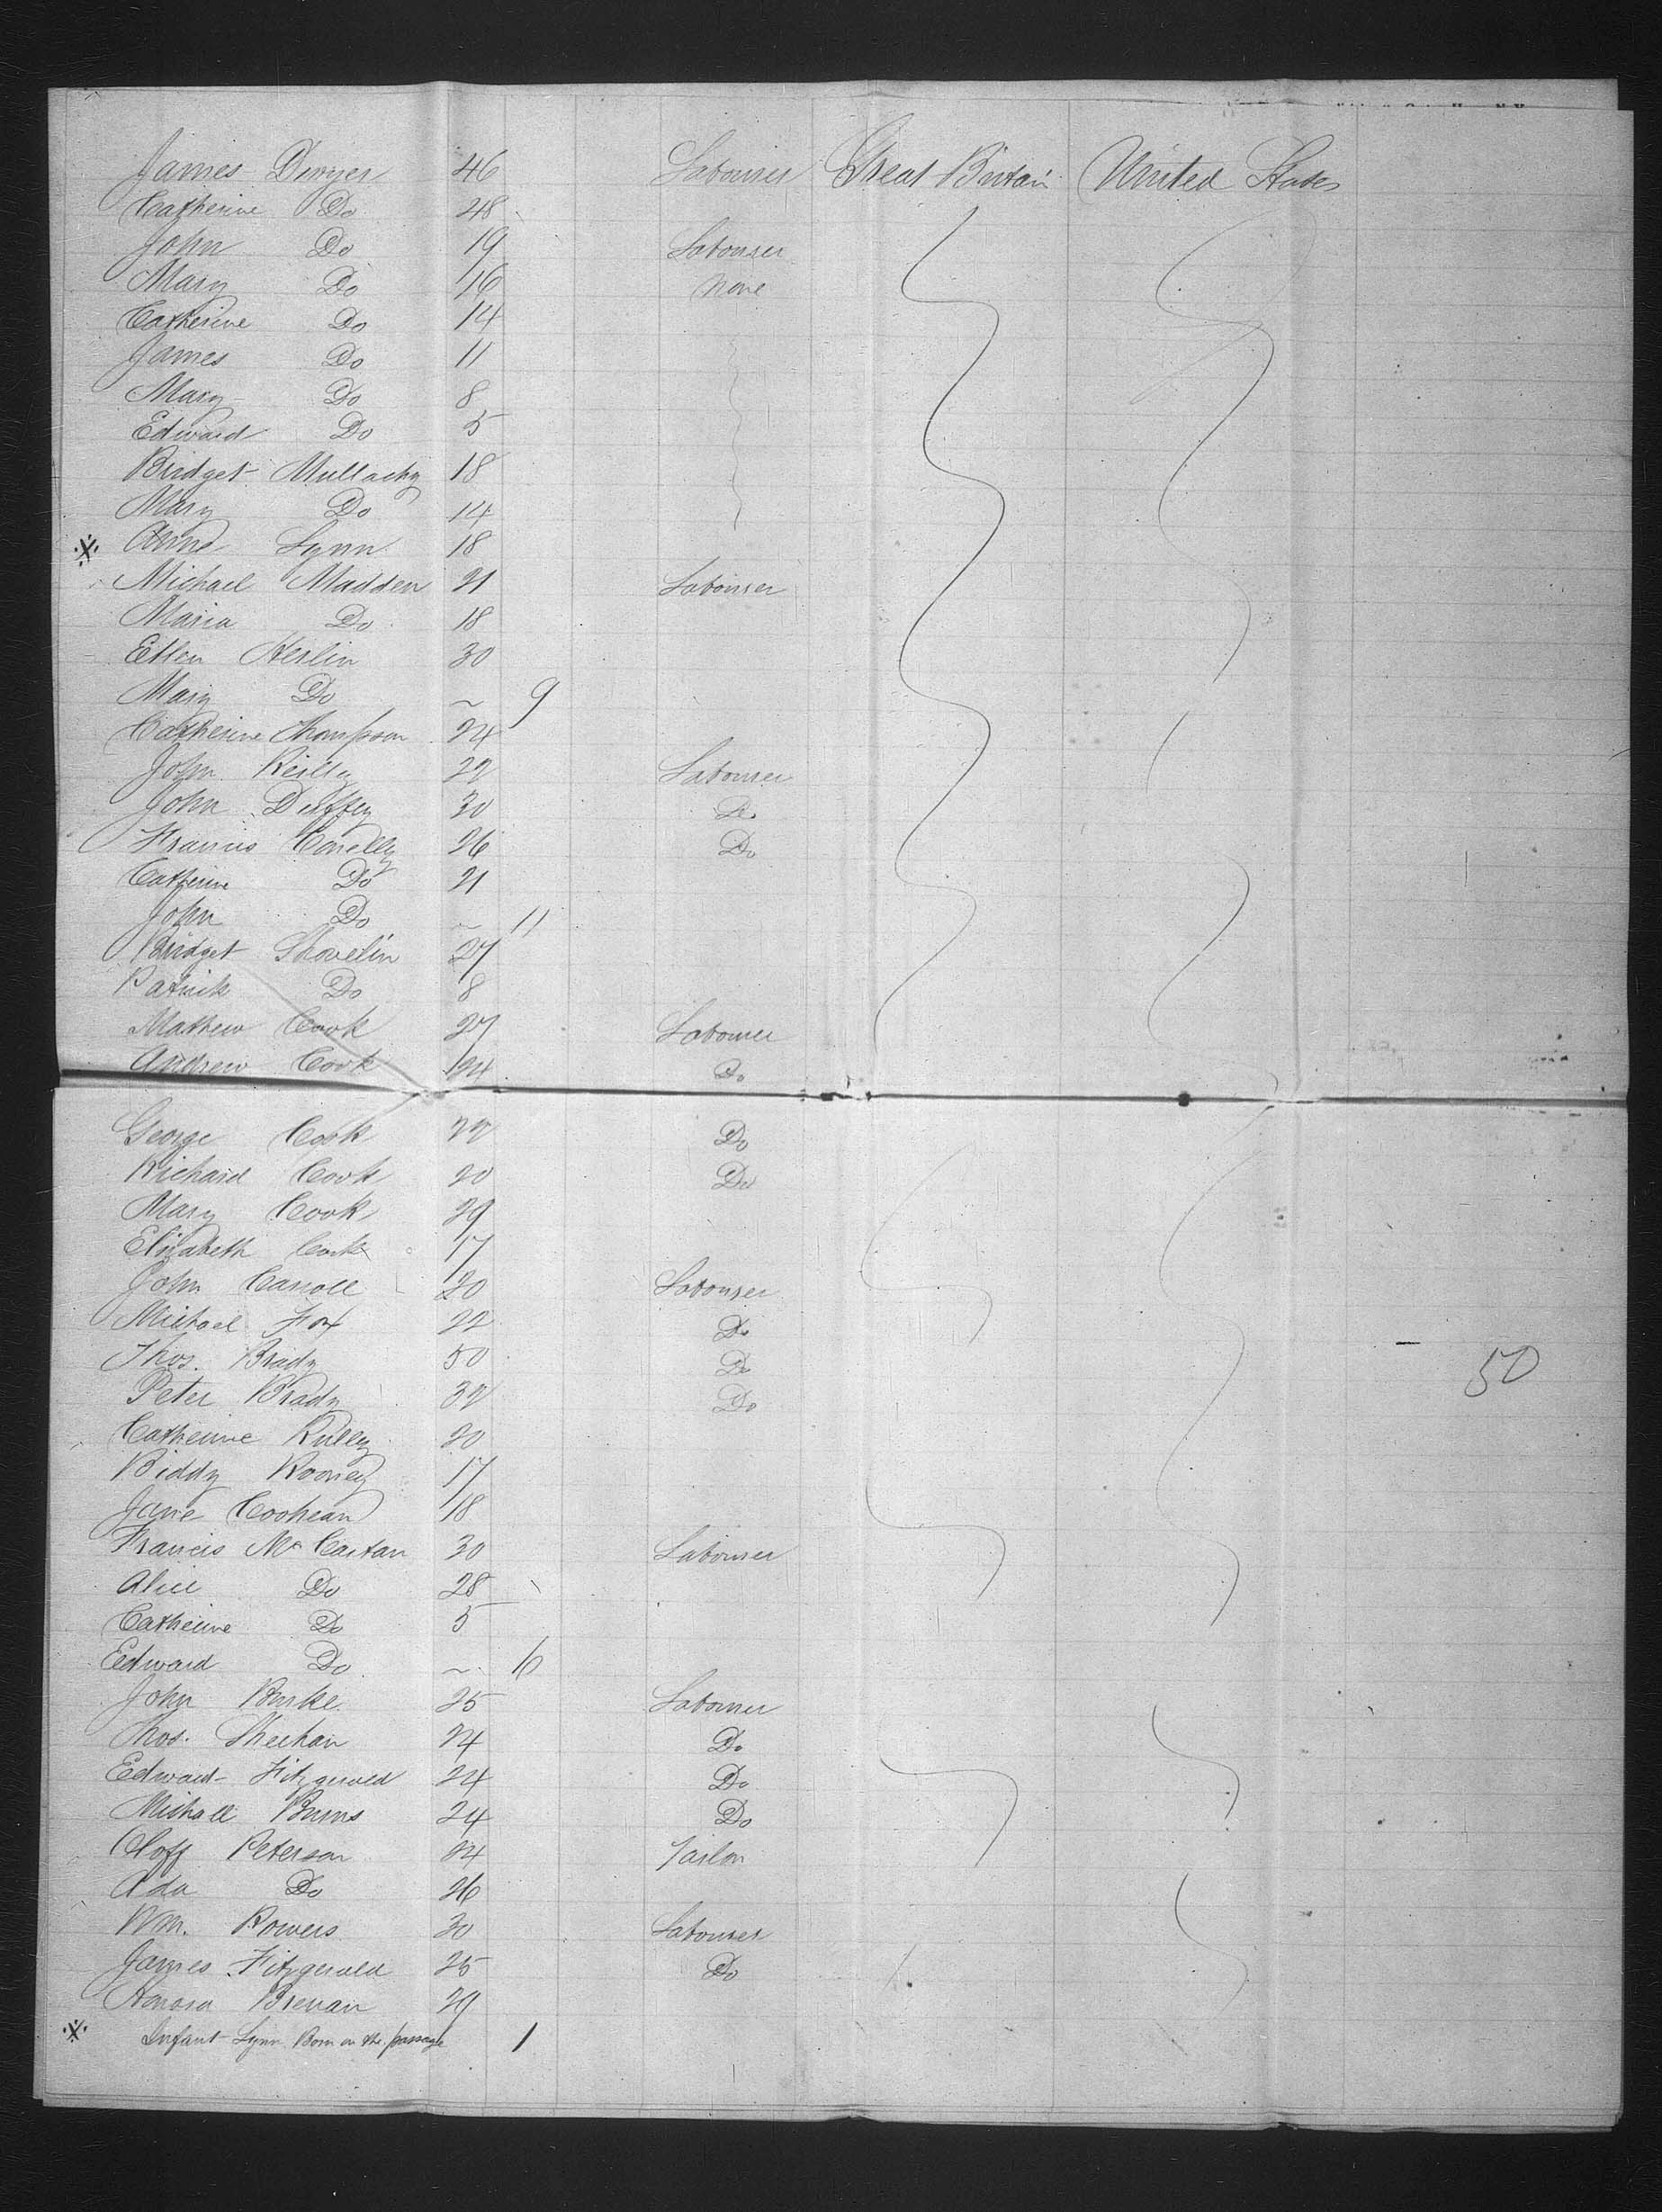 James Dwyer 46 Labourer Great Britain United States
Catherine Do 48
John Do 19 Labourer
Mary Do 16 None
Catherine Do 14
James Do 11
Mary Do 8
Edward Do 5
Bridget Mullachy 18
Mary Do 14
※ Anne Lynn 18
Michael Madden 21 Labourer
Maria Do 18
Ellen Herlin 30
Mary Do ~ 9
Catherine Thompson 24
John Reilly 22 Labourer
John Duffey 30 Do
Francis Conelly 26 Do
Catherine Do 21
John Do ~ 11
Bridget Shovelin 27
Patrick Do 8
Mathew Cook 27 Labourer
Andrew Cook 24 Do
George Cook 22 Do
Richard Cook 20 Do
Mary Cook 29
Elizabeth Cook 17
John Carroll 20 Labourer
Michael Fox 22 Do
Thos. Brady 50 Do
Peter Brady 32 Do 50
Catherine 20
Biddy Rooney 17
Jane Coohean 18
Francis Mc Cartan 30 Labourer
Alice Do 28
Catherine Do 5
Edward Do ~ 6
John Burke 25 Labourer
Thos. Sheehan 24 Do
Edward Fitzgerald 24 Do
Michael Burns 24 Do
Oloff Peterson 24 Tailor
Ada Do 26
Wm. Powers 30 Labourer
James Fitzgerald 25 Do
Honora Brenan 29
※ Infant Lynn Born on the passage 1